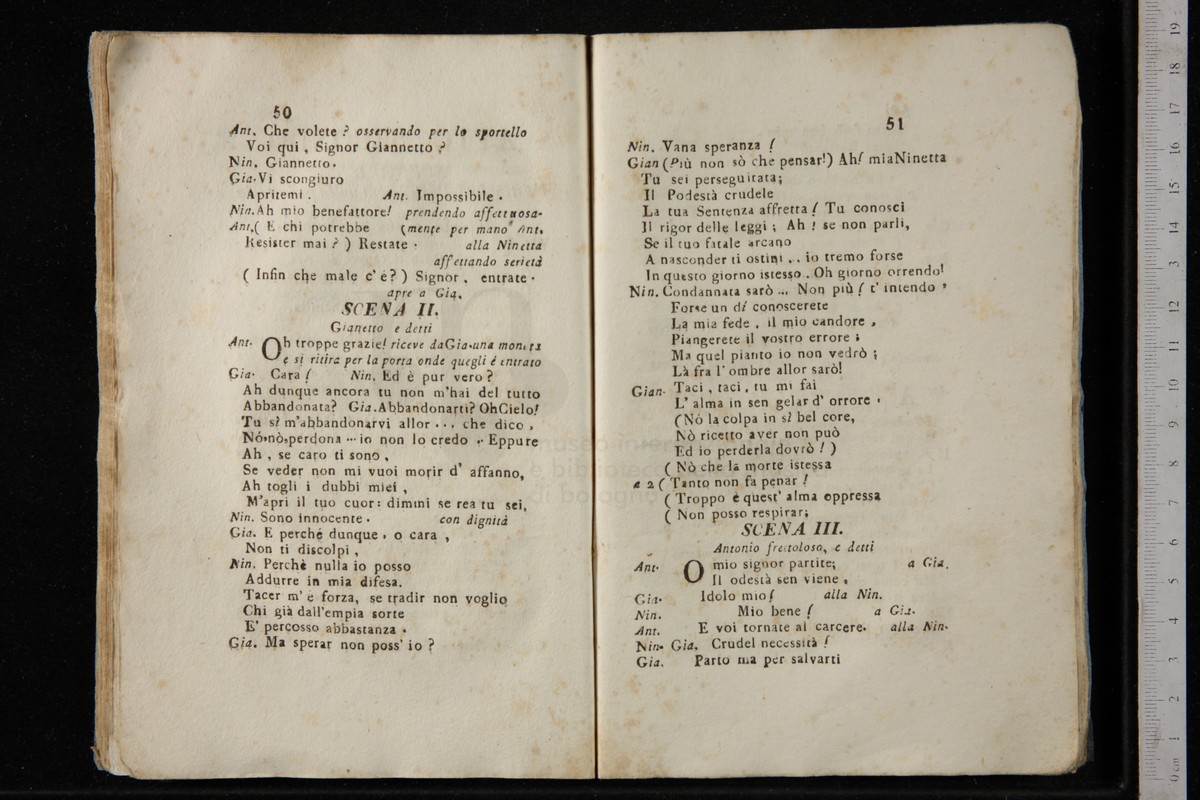 50
Ant. Che volete ? osservando per lo sportello
Voi qui , Signor Giannetto ?
Nin. Giannetto.
Gia. Vi scongiuro
Apritemi . Ant. Impossibile .
Nin. Ah mio benefattore! prendendo affettuosa-
Ant. ( E chi potrebbe (mente per mano Ant.
Resister mai ? ) Restate . alla Ninetta
affettando serietà
( Infin che male c' é? ) Signor , entrate .
apre a Gia.
SCENA II.
Gianetto e detti
Ant. Oh troppe grazie! riceve da Gia. una moneta
e si ritira per la porta onde quegli é entrato
Gia. Cara ! Nin. Ed è pur vero ?
Ah dunque ancora tu non m'hai del tutto
Abbandonata? Gia. Abbandonarti? Oh Cielo!
Tu sì m'abbandonarvi allor . . . che dico ,
Nó, nò, perdona ... io non lo credo .. Eppure
Ah , se caro ti sono ,
Se veder non mi vuoi morir d' affanno,
Ah togli i dubbi miei ,
M'apri il tuo cuor: dimmi se rea tu sei,
Nin. Sono innocente . con dignità
Gia. E perché dunque , o cara ,
Non ti discolpi ,
Nin. Perchè nulla io posso
Addurre in mia difesa.
Tacer m' e forza, se tradir non voglio
Chi già dall'empia sorte
E' percosso abbastanza .
Gia. Ma sperar non poss' io ?
51
Nin. Vana speranza !
Gian (Più non sò che pensar!) Ah! mia Ninetta
Tu sei perseguitata;
Il Podestà crudele
La tua Sentenza affretta ! Tu conosci
Il rigor delle leggi ; Ah ! se non parli,
Se il tuo fatale arcano
A nasconder ti ostini ... io tremo forse
In questo giorno istesso . Oh giorno orrendo!
Nin. Condannata sarò ... Non più ! t' intendo ,
Forse un dí conoscerete
La mia fede , il mio candore ,
Piangerete il vostro errore ;
Ma quel pianto io non vedrò ;
Là fra l' ombre allor sarò!
Gian. Taci , taci , tu mi fai
L' alma in sen gelar d' orrore ,
(Nó la colpa in sì bel core,
Nò ricetto aver non può
Ed io perderla dovrò ! )
( Nò che la morte istessa
a 2 ( Tanto non fa penar !
( Troppo è quest' alma oppressa
( Non posso respirar;
SCENA III.
Antonio frettoloso, e detti
Ant. O mio signor partite; a Gia.
Il odestà sen viene ,
Gia. Idolo mio! alla Nin.
Nin. Mio bene ! a Gia.
Ant. E voi tornate al carcere. alla Nin.
Nin. Gia. Crudel necessità !
Gia. Parto ma per salvarti